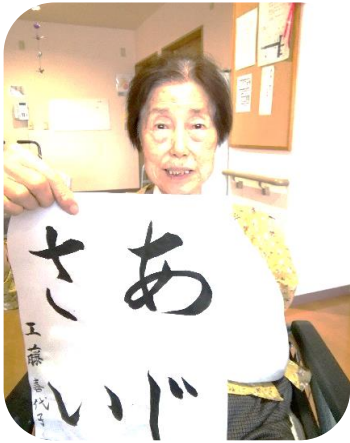 あじ
さい
工藤喜代子